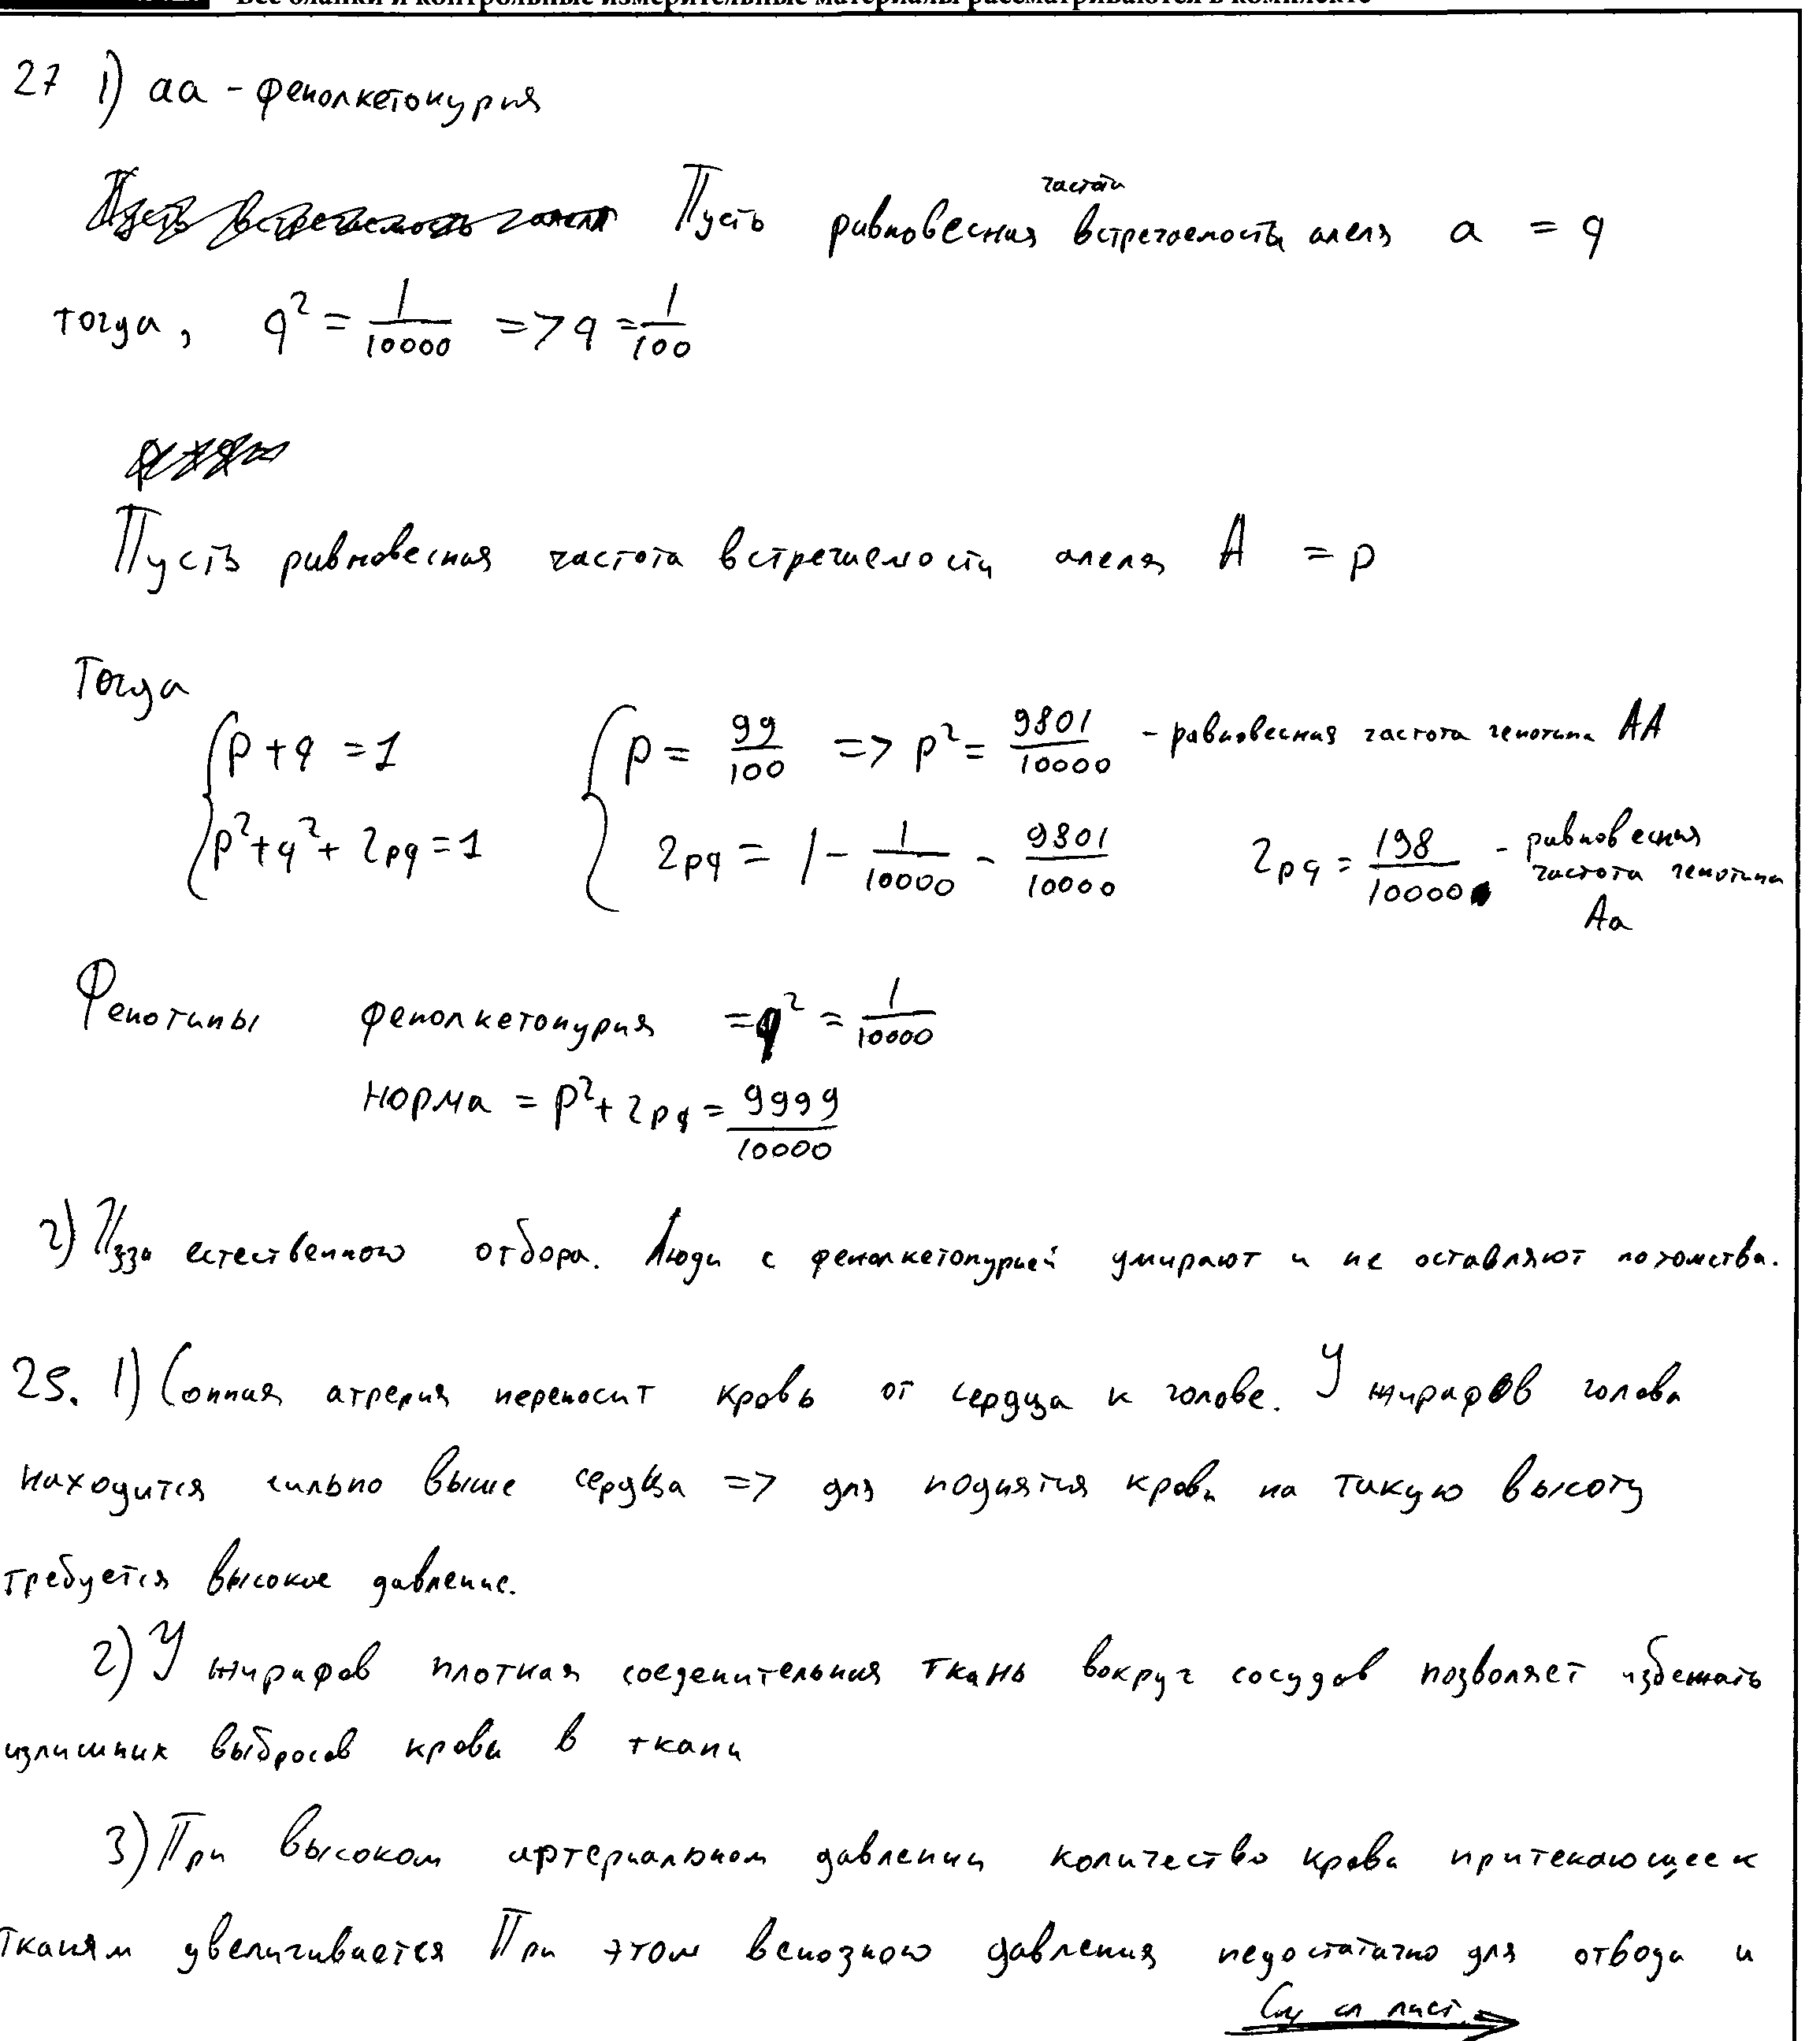 Все бланки и контрольные измерительные материалы рассматриваются в комплекте
27 1) аа - фенолкетонурия
Пусть равновесная частоты встречаемость алеля а = q
тогда, q² = 1/10000 => q = 1/100
Пусть равновесная частота встречаемости алеля А = p
Тогда
p + q = 1
p² + q² + 2pq = 1
p = 99/100 => p² = 9801/10000 - равновесная частота генотипа АА
2pq = 1 - 1/10000 - 9801/10000
2pq = 198/10000 - равновесная
частота генотипа
Аа
Фенотипы фенолкетонурия = q² = 1/10000
норма = p² + 2pq = 9999/10000
2) Изза естественного отбора. Люди с фенолкетонурией умирают и не оставляют потомства.
25. 1) Сонная атрерия переносит кровь от сердца к голове. У жирафов голова
находится сильно выше сердца => для поднятия крови на такую высоту
требуется высокое давление.
2) У жирафов плотная соеденительная ткань вокруг сосудов позволяет избежать
излишних выбросов крови в ткани
3) При высоком артериальном давлении количество крови притекающее к
тканям увеличивается При этом венозного давления недостатачно для отвода и
См сл лист